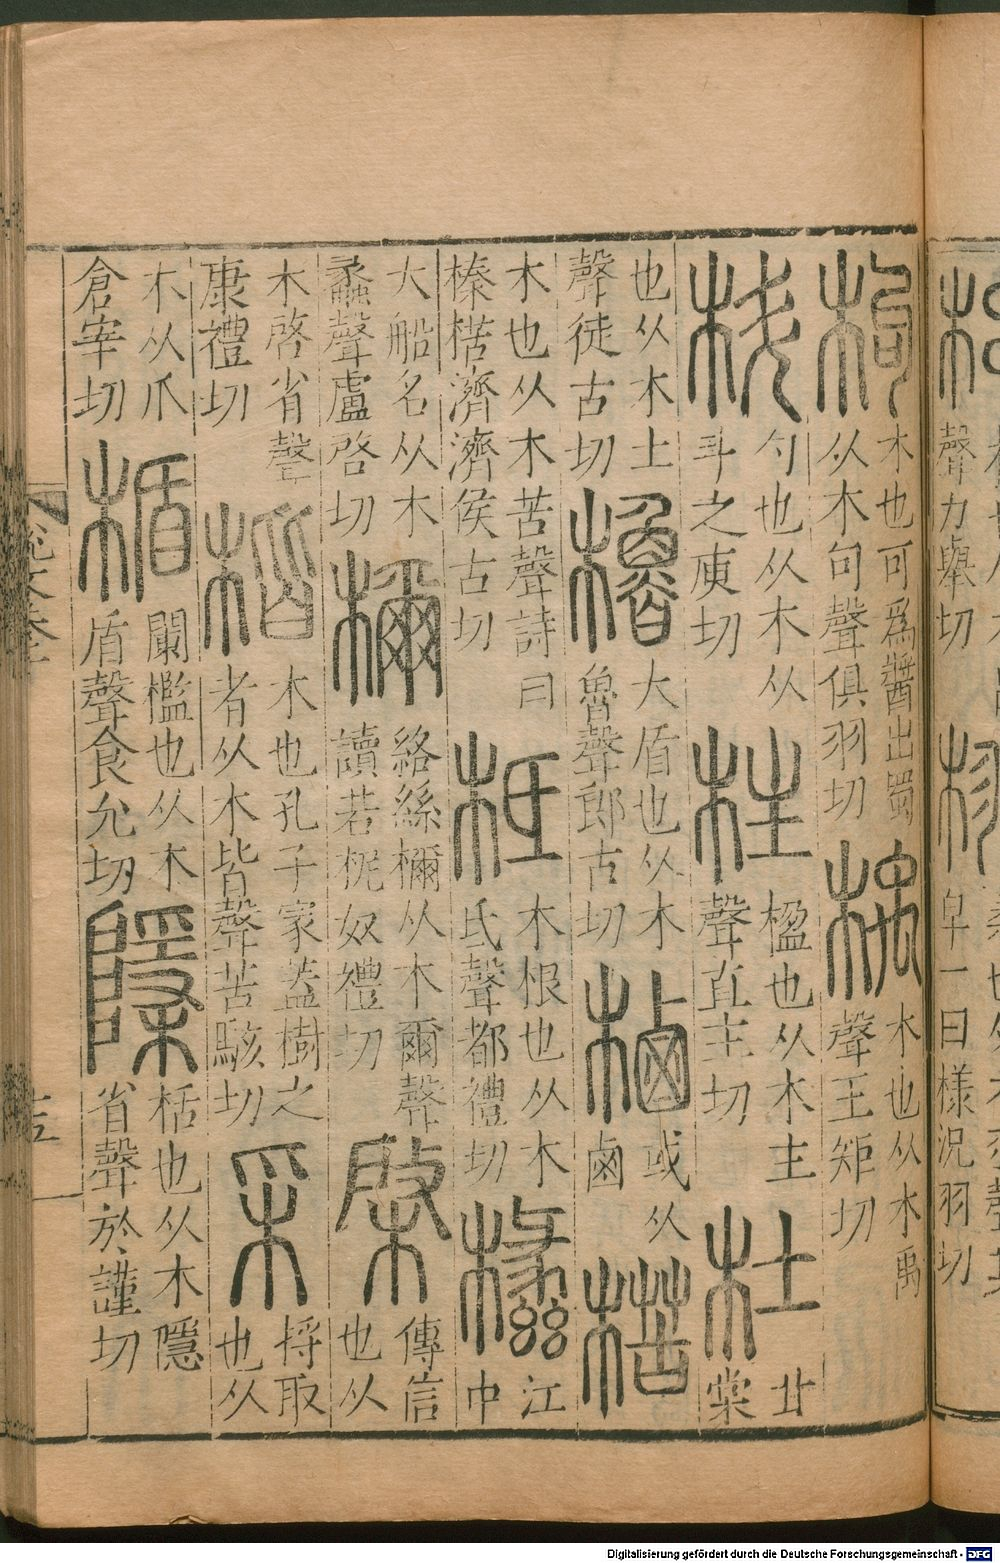 聲力舉切 栩 皁一曰樣況羽切
枸 木也可爲醬出蜀从木句聲俱羽切 楀 木也从木禹聲王矩切
枓 勺也从木从斗之庾切 柱 楹也从木主聲直主切 杜 甘棠
也从木土聲徒古切 櫓 大盾也从木魯聲郎古切 樐 或从鹵 楛
木也从木苦聲詩曰榛楛濟濟侯古切 柢 木根也从木氐聲都禮切 欚 江中
大船名从木蠡聲盧啓切 檷 絡絲檷从木爾聲讀若柅奴禮切 棨 傳信也从
木啓省聲康禮切 楷 木也孔子家蓋樹之者从木皆聲苦駭切 采 捋取也从
木从爪倉宰切 楯 闌檻也从木盾聲食允切 㯌 栝也从木隱省聲於謹切
Digitalisierung gefördert durch die Deutsche Forschungsgemeinschaft - DFG